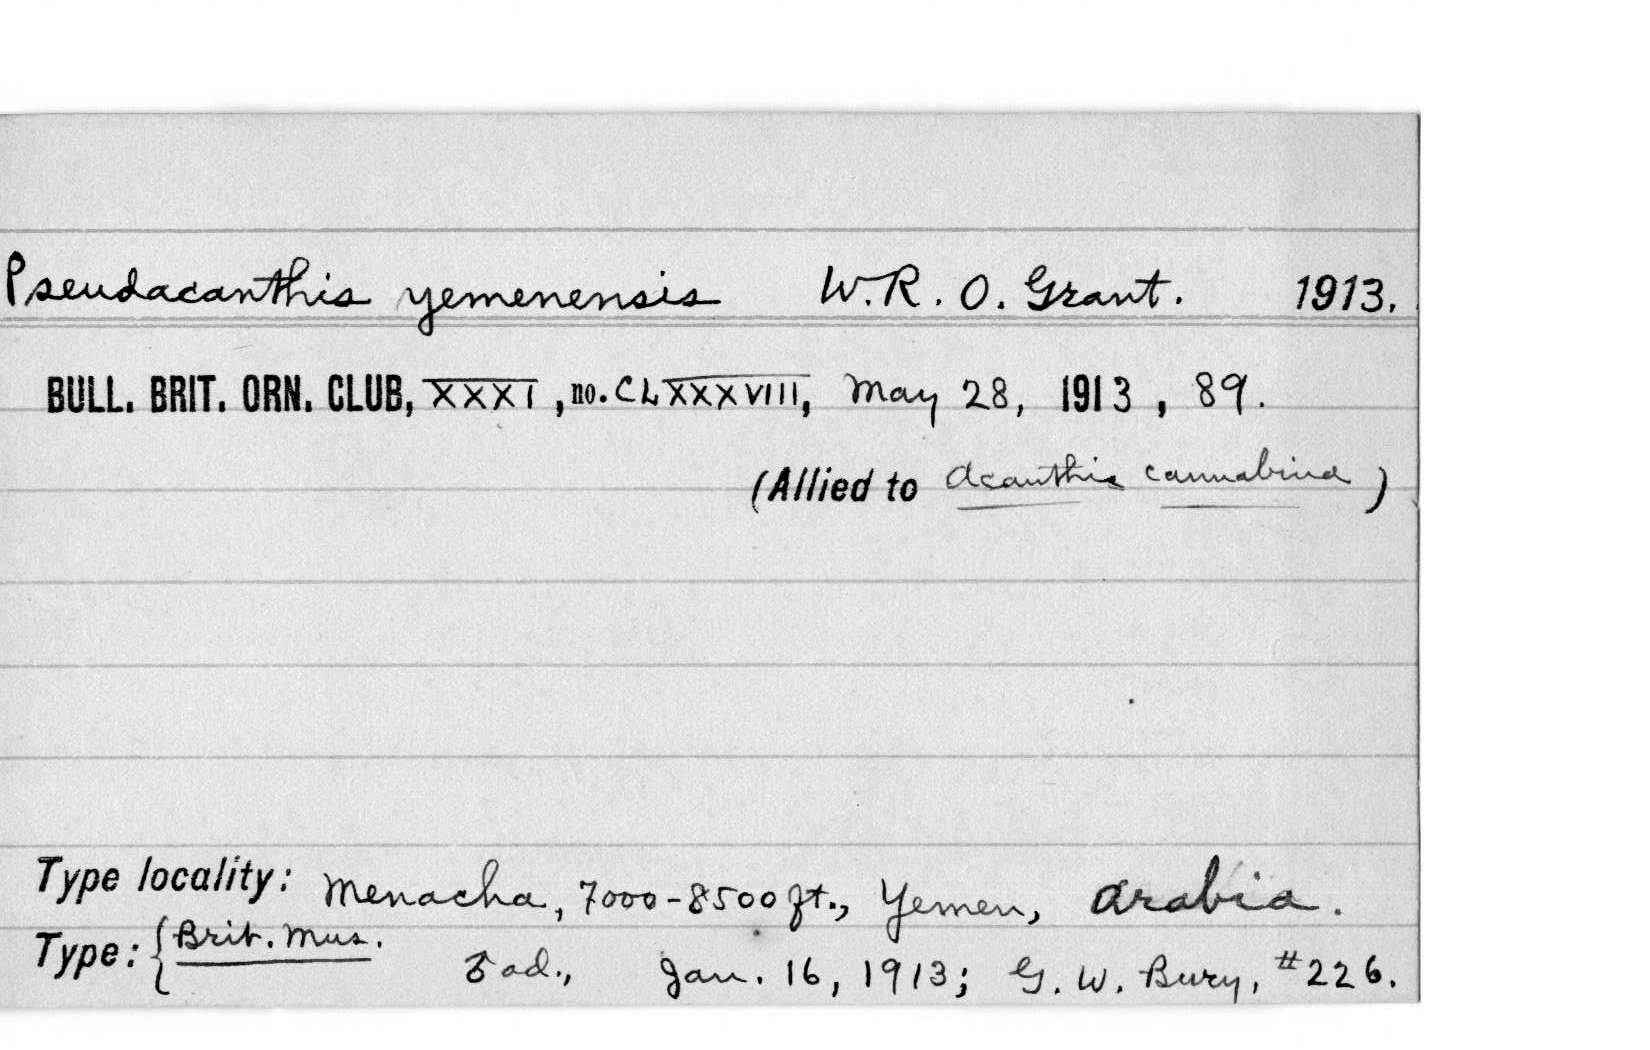 Pseudacanthis yemenensis W.R.O. Grant. 1913.
BULL. BRIT. ORN. CLUB, XXXI, no. CLXXXVIII, May 28, 1913, 89.
(Allied to Acanthis cannabina)
Type locality: Menacha, 7000-8500 ft., Yemen, Arabia.
Type: { Brit. Mus.
♂ ad., Jan. 16, 1913; G. W. Bury, #226.